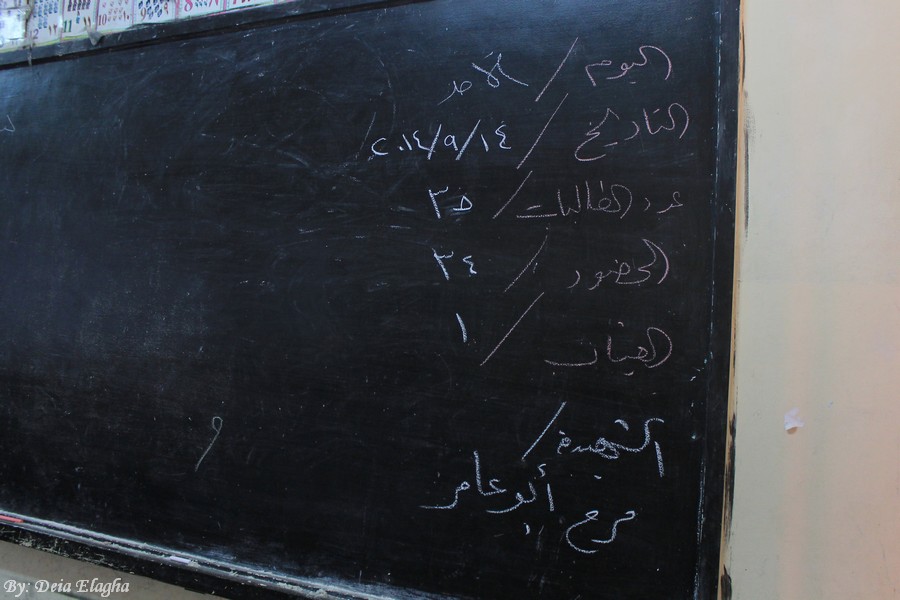 اليوم / الأحد
التاريخ / ١٤/٩/٢٠١٤
عدد الطالبات / ٣٥
الحضور / ٣٤
الغياب / ١
الشهيدة /
مرح أبو عامر
By: Deia Elagha